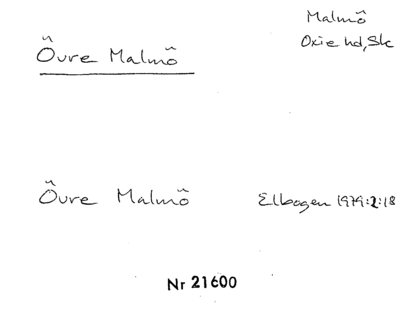 Malmö
Övre Malmö
Oxie hd, Sk
Övre Malmö
Elbogen 1979:2:18
Nr 21600